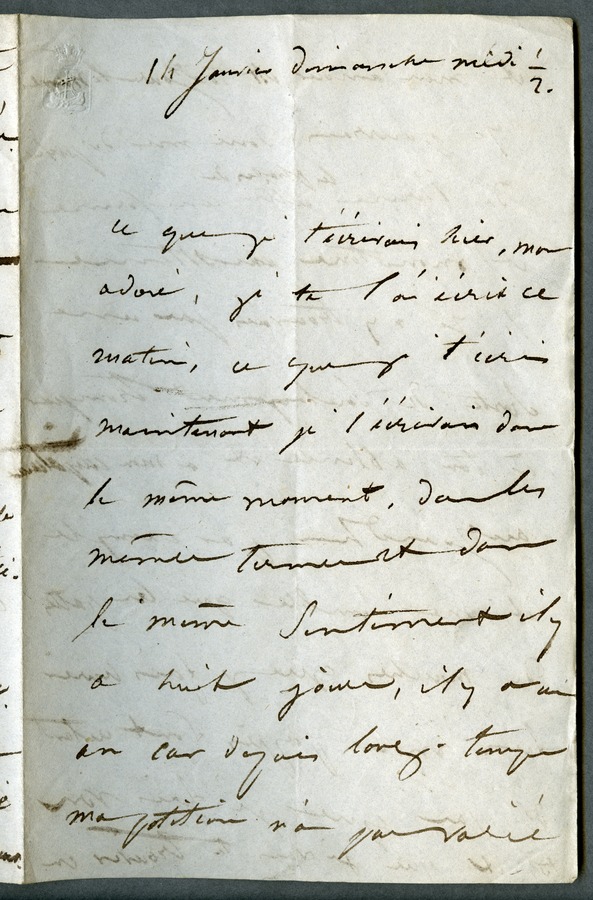 14 Janvier dimanche midi 1/2.
ce que je t'écrivais hier, mon
adoré, je te l'ai écrit ce
matin, ce que je t'écris
maintenant je l'écrivais dans
le même moment, dans les
mêmes termes et dans
le même sentiment il y
a huit jours, il y a un
an car depuis longtemps
ma position n'a pas varié